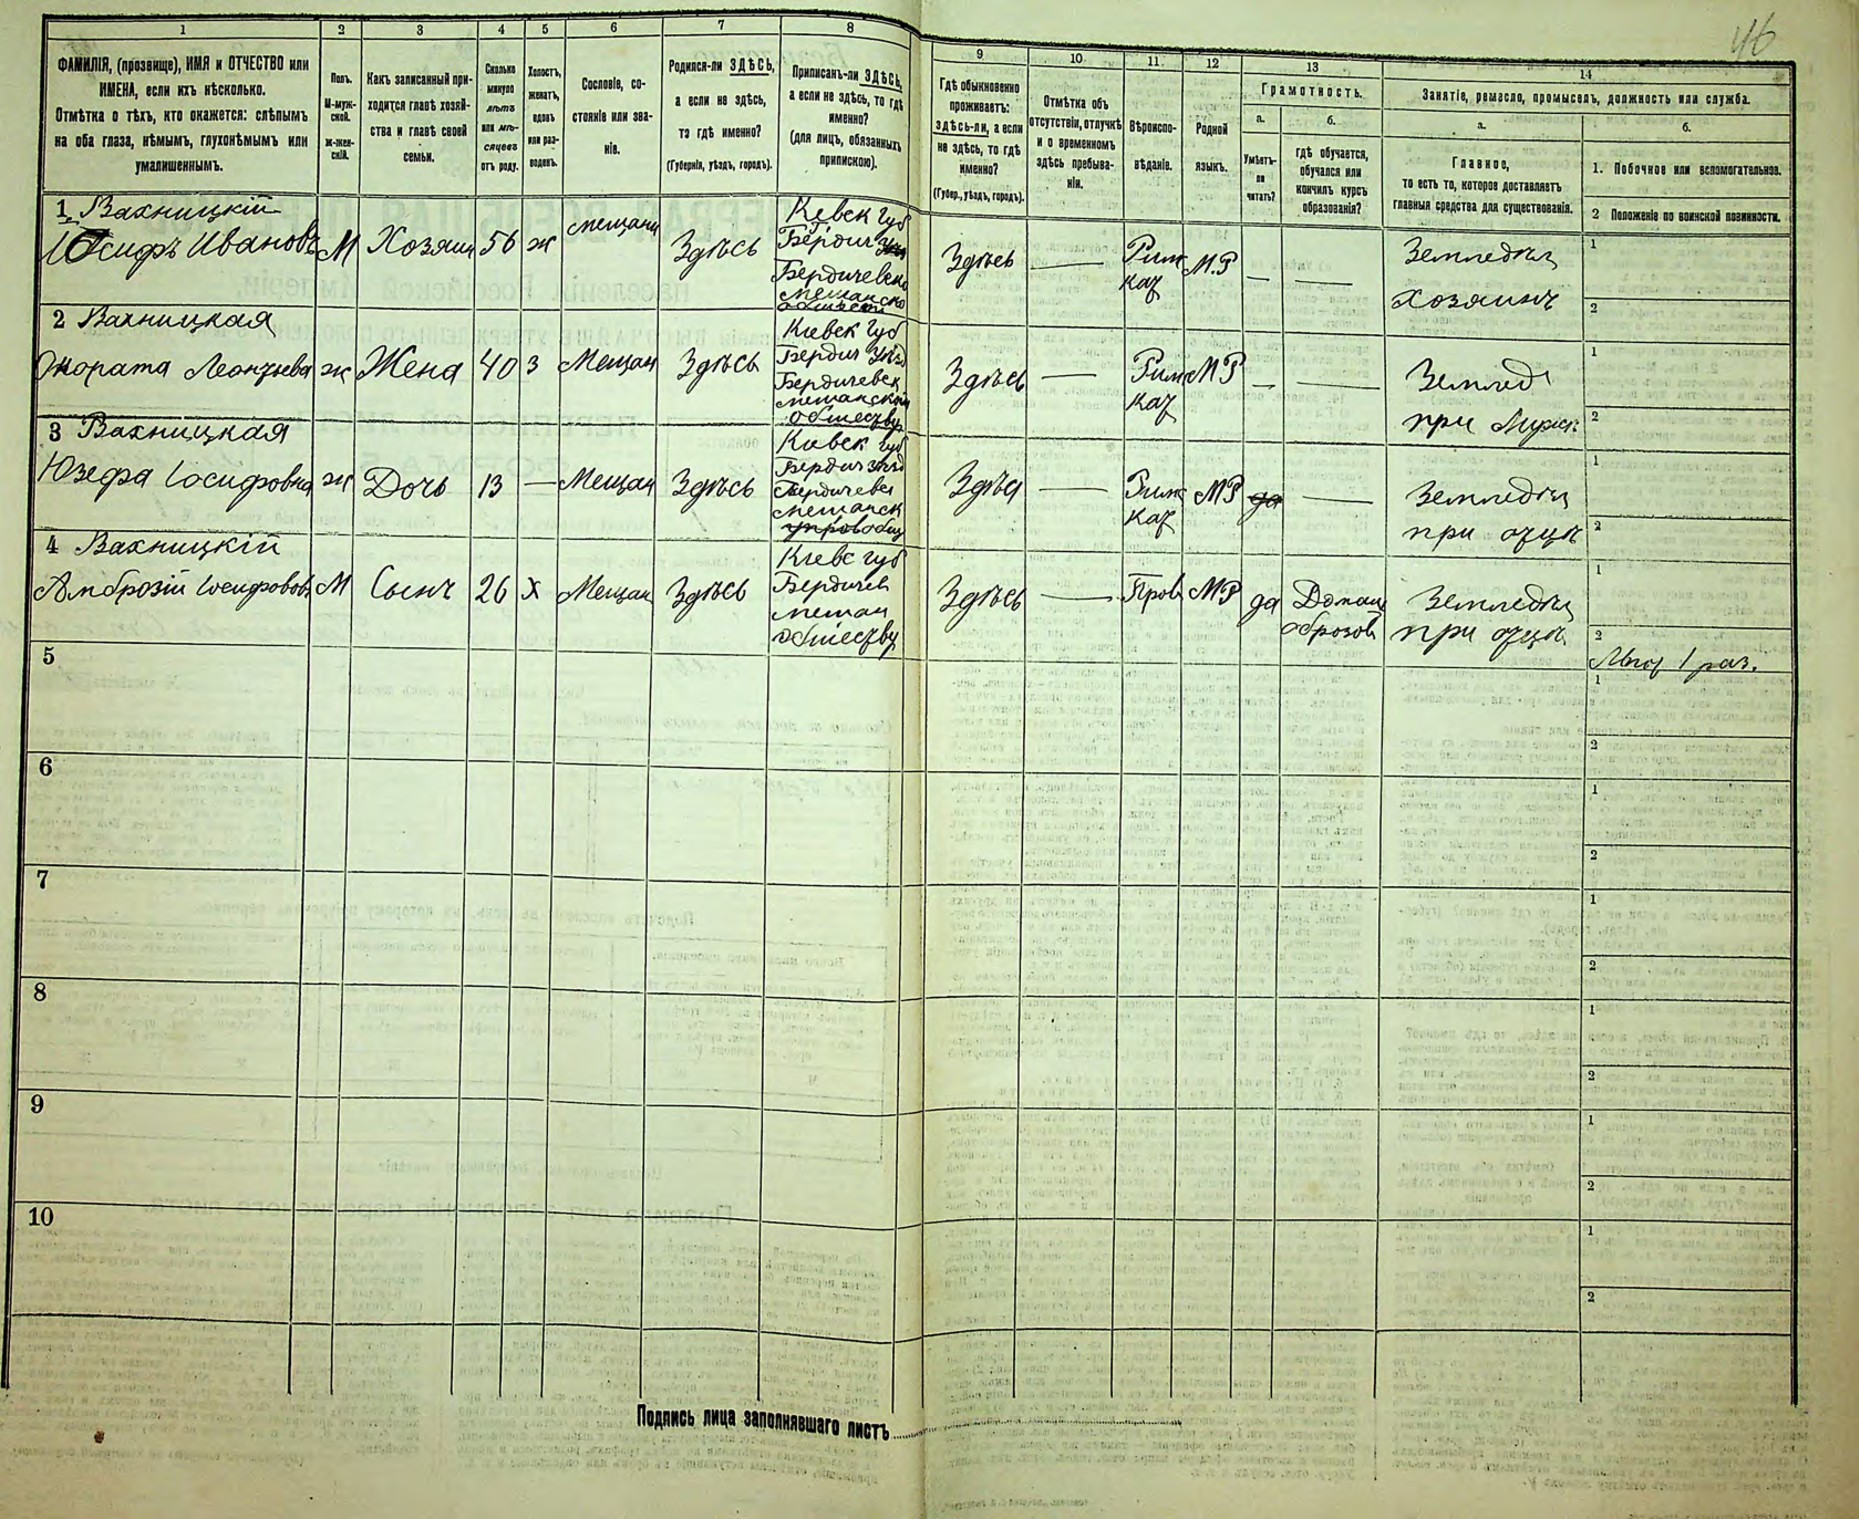 46
1 2 3 4 5 6 7 8 9 10 11 12 13 14
ФАМИЛІЯ, (прозвище), ИМЯ и ОТЧЕСТВО или
ИМЕНА, если ихъ нѣсколько.
Отмѣтка о тѣхъ, кто окажется: слѣпымъ
на оба глаза, нѣмымъ, глухонѣмымъ или
умалишеннымъ.
Полъ.
М-муж-
ской.
Ж-жен-
скій.
Какъ записанный при-
ходится главѣ хозяй-
ства и главѣ своей
семьи.
Сколько
минуло
лѣтъ
или мѣ-
сяцевъ
отъ роду.
Холостъ,
женатъ,
вдовъ
или раз-
веденъ.
Сословіе, со-
стояніе или зва-
ніе.
Родился-ли ЗДѢСЬ,
а если не здѣсь,
то гдѣ именно?
(Губернія, уѣздъ, городъ).
Приписанъ-ли ЗДѢСЬ,
а если не здѣсь, то гдѣ
именно?
(для лицъ, обязанныхъ
припискою).
Гдѣ обыкновенно
проживаетъ:
здѣсь-ли, а если
не здѣсь, то гдѣ
именно?
(Губер., уѣздъ, городъ).
Отмѣтка объ
отсутствіи, отлучкѣ
и о временномъ
здѣсь пребыва-
ніи.
Вѣроиспо-
вѣданіе.
Родной
языкъ.
Грамотность.
а.
Умѣетъ-
ли
читать?
б.
гдѣ обучается,
обучался или
кончилъ курсъ
образованія?
Занятіе, ремесло, промыселъ, должность или служба.
а.
Главное,
то есть то, которое доставляетъ
главныя средства для существованія.
б.
1. Побочное или вспомогательное.
2 Положеніе по воинской повинности.
1 Вахницкій
Іосифъ Ивановъ М Хозяин 56 ж мещани Здѣсь
Кевск губ
Бердич
Бердичевск
мещанско
обществ
Здѣсь — Рим
каз
М.Р — —
Земледѣл
хозяинъ
1
2
2 Вахницкая
Онората Леонтьева ж Жена 40 З Мещан Здѣсь
Киевск губ
Бердич уѣз
Бердичевск
мещанском
обществу
Здѣсь — Рим
каз
МР — —
Землед
при Муже
1
2
3 Вахницкая
Юзефа Іосифовна ж Дочь 13 — Мещан Здѣсь
Киевск губ
Бердич уѣзд
Бердичевск
мещанск
Здѣсь — Рим
каз
МР да —
Земледѣл
при отцѣ
1
2
4 Вахницкій
Амброзій Іосифовов М Сынъ 26 Х Мещан Здѣсь
Киевс губ
Бердичев
мещан
обществу
Здѣсь — Прав МР да Домаш
образов
Земледѣл
при отцѣ
1
2
1 раз.
5
1
2
6
1
2
7
1
2
8
1
2
9
1
2
10
1
2
Подпись лица заполнявшаго листъ